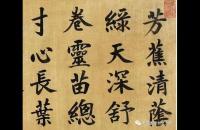 芳蕉清蔭
綠天深舒
卷靈苗總
寸心長葉